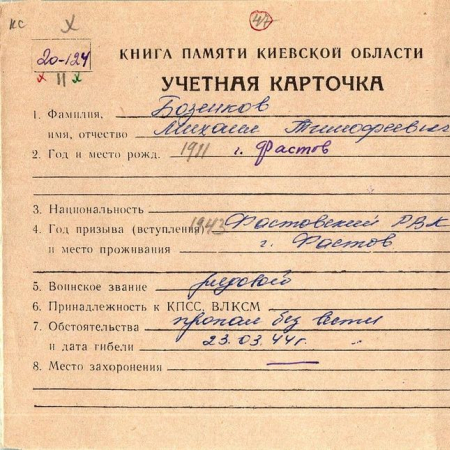 КС X 44
20-124
х II х
КНИГА ПАМЯТИ КИЕВСКОЙ ОБЛАСТИ
УЧЕТНАЯ КАРТОЧКА
1. Фамилия, Бозенков
имя, отчество Михаил Тимофеевич
2. Год и место рожд. 1911 г. Фастов
3. Национальность
4. Год призыва (вступления) 1943 Фастовский РВК
и место проживания г. Фастов
5. Воинское звание рядовой
6. Принадлежность к КПСС, ВЛКСМ
7. Обстоятельства пропал без вести
и дата гибели 23.03.44г. "
8. Место захоронения —